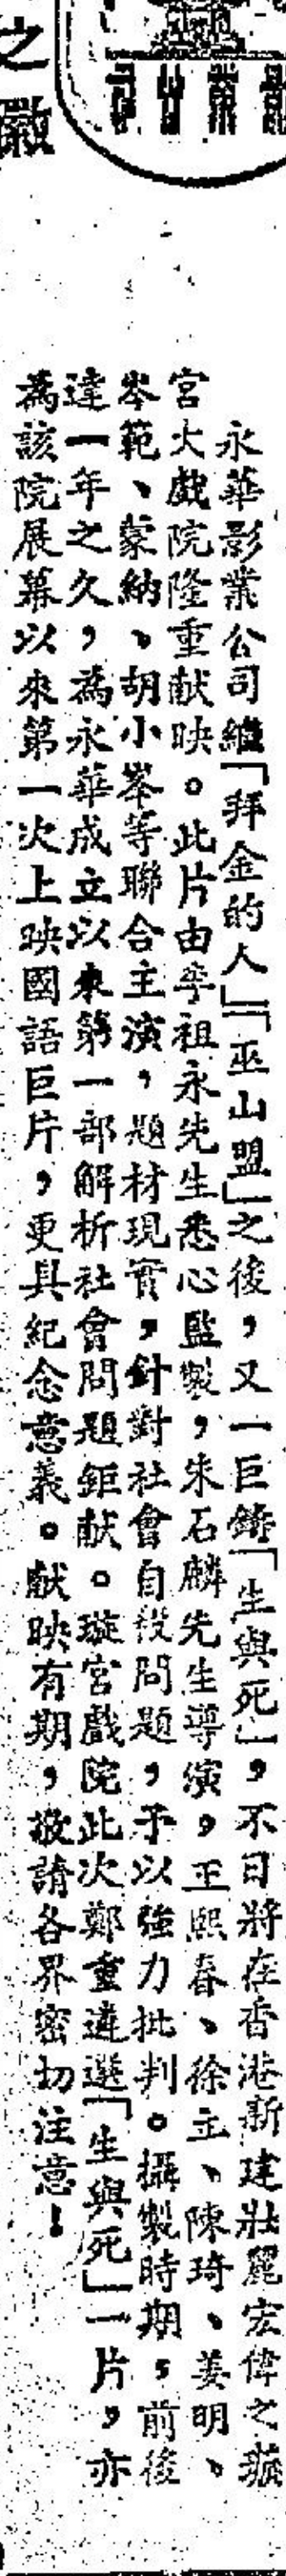 之徽
永華影業公司繼「拜金的人」「巫山盟」之後，又一巨鑄「生與死」，不日將在香港新建壯麗宏偉之璇
宮大戲院隆重献映。此片由李祖永先生悉心監製，朱石麟先生導演，王熙春、徐立、陳琦、姜明、
岑範、蒙納、胡小峯等聯合主演，題材現實，針對社會自殺問題，予以強力批判。攝製時期，前後
達一年之久，為永華成立以來第一部解析社會問題鉅献。璇宮戲院此次鄭重遴選「生與死」一片，亦
為該院展幕以來第一次上映國語巨片，更具紀念意義。献映有期，敬請各界密切注意！